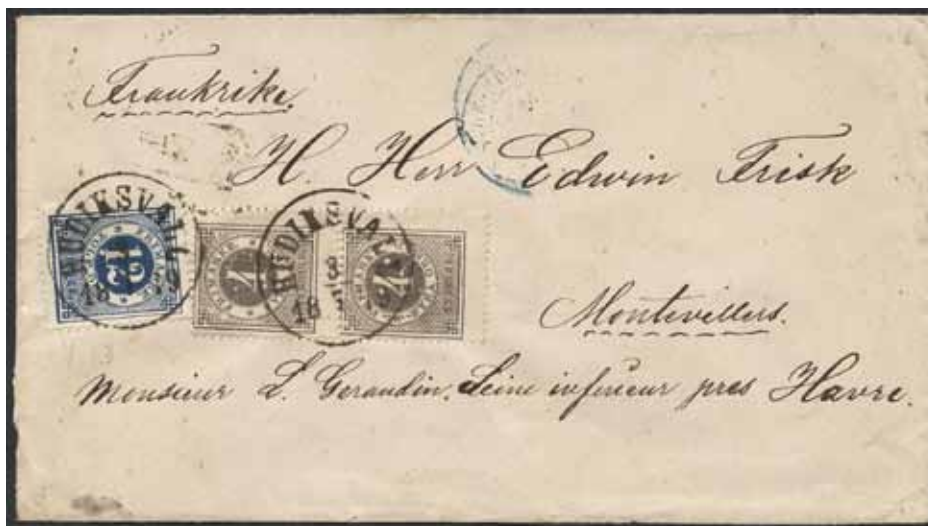 Frankrike.
H. Herr Edwin Frisk
HUDIKSVALL
HUDIKSVALL
12
4
4
18
8
18
Montevillers.
Monsieur L. Gerandin. Seine inferieur pres Havre.